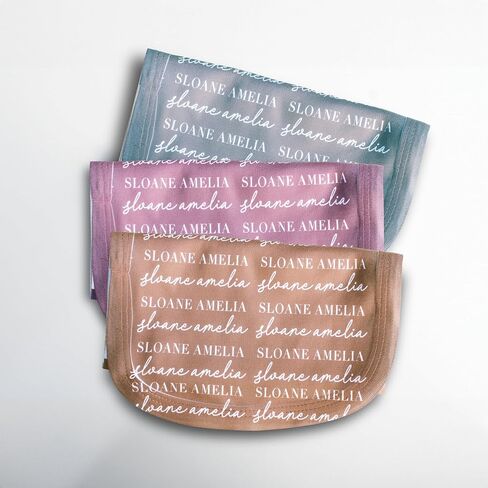 SLOANE AMELIA SLOANE AMELIA
sloane amelia sloane amelia
SLOANE AMELIA SLOANE AMELIA
sloane amelia sloane amelia
SLOANE AMELIA SLOANE AMELIA
sloane amelia sloane amelia
SLOANE AMELIA SLOANE AMELIA
SLOANE AMELIA SLOANE AMELIA
sloane amelia sloane amelia
SLOANE AMELIA SLOANE AMELIA
sloane amelia sloane amelia
SLOANE AMELIA SLOANE AMELIA
sloane amelia sloane amelia
SLOANE AMELIA SLOANE AMELIA
sloane amelia sloane amelia